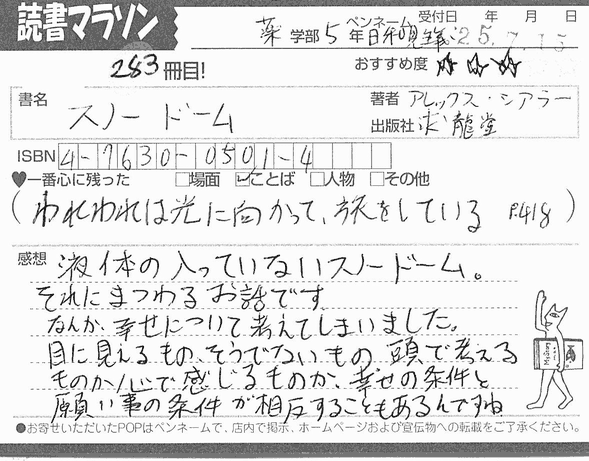 読書マラソン
薬 学部 5 年 ペンネーム 受付日 年 月 日
25.7.15
283冊目!
おすすめ度 ☆☆☆
書名 スノードーム
著者 アレックス・シアラー
出版社 求龍堂
ISBN 4-7630-0501-4
♥一番心に残った □場面 ☑ことば □人物 □その他
(われわれは光に向かって、旅をしている P.418)
感想 液体の入っていないスノードーム。
それにまつわるお話です
なんか、幸せについて考えてしまいました。
目に見えるもの、そうでないもの 頭で考える
ものか心で感じるものか、幸せの条件と
願い事の条件が相反することもあるんですね
●お寄せいただいたPOPはペンネームで、店内で掲示、ホームページおよび宣伝物への転載をご了承ください。